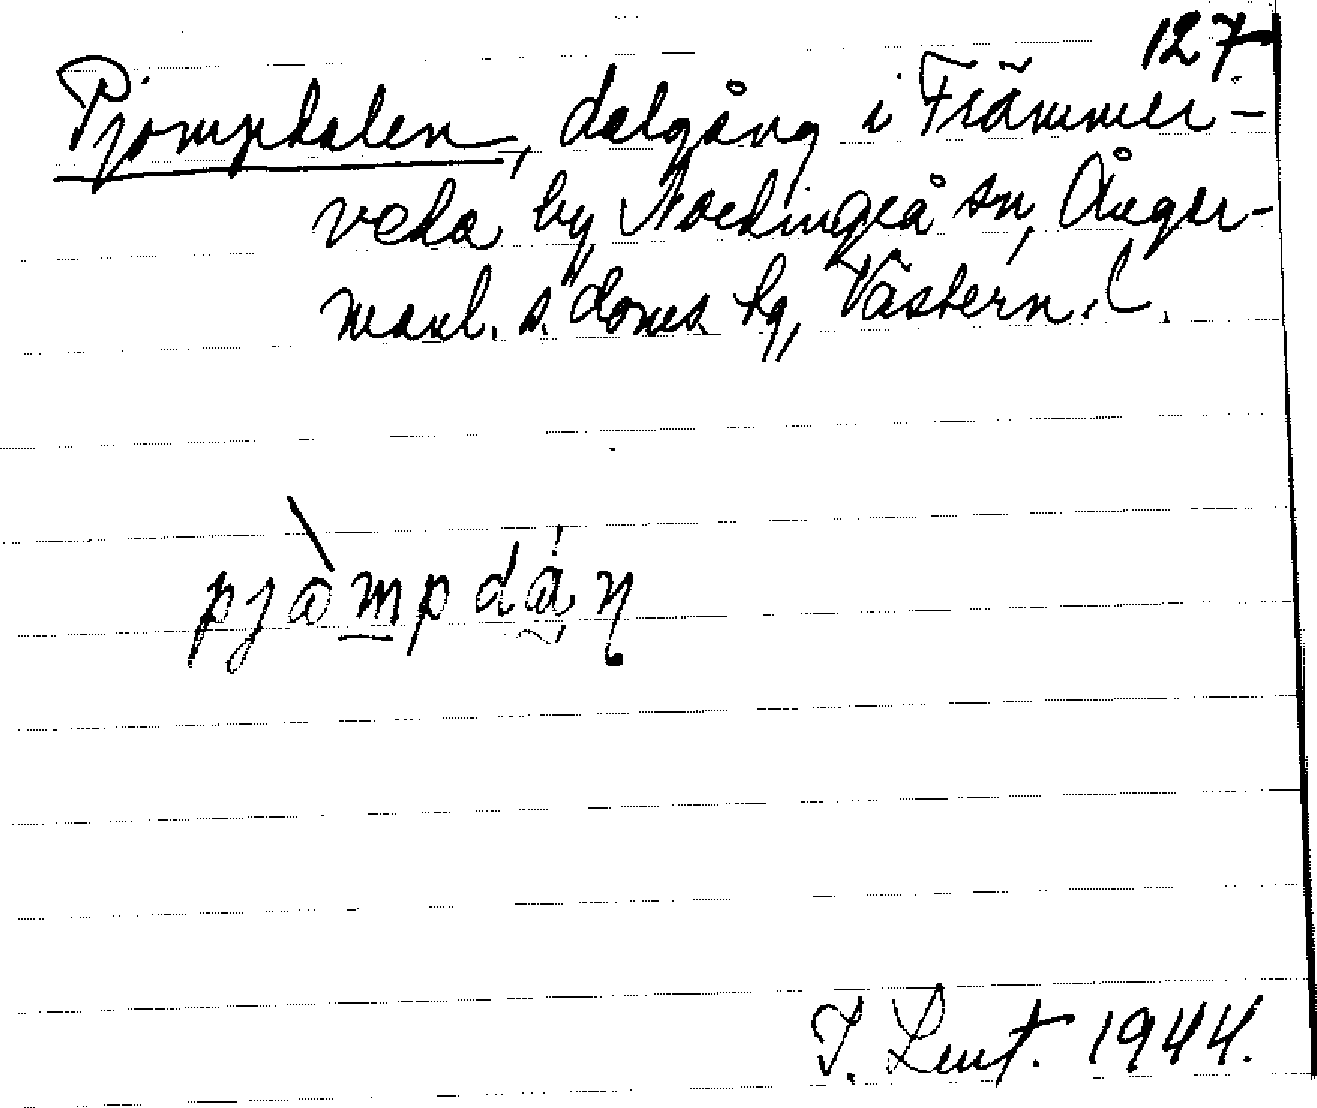 127
Pjompdalen, dalgång i Främmer-
veda by, Nordingrå sn, Ånger-
manl. s. doms. hg, Västern. l.
pjòmpdán
I. Lent. 1944.